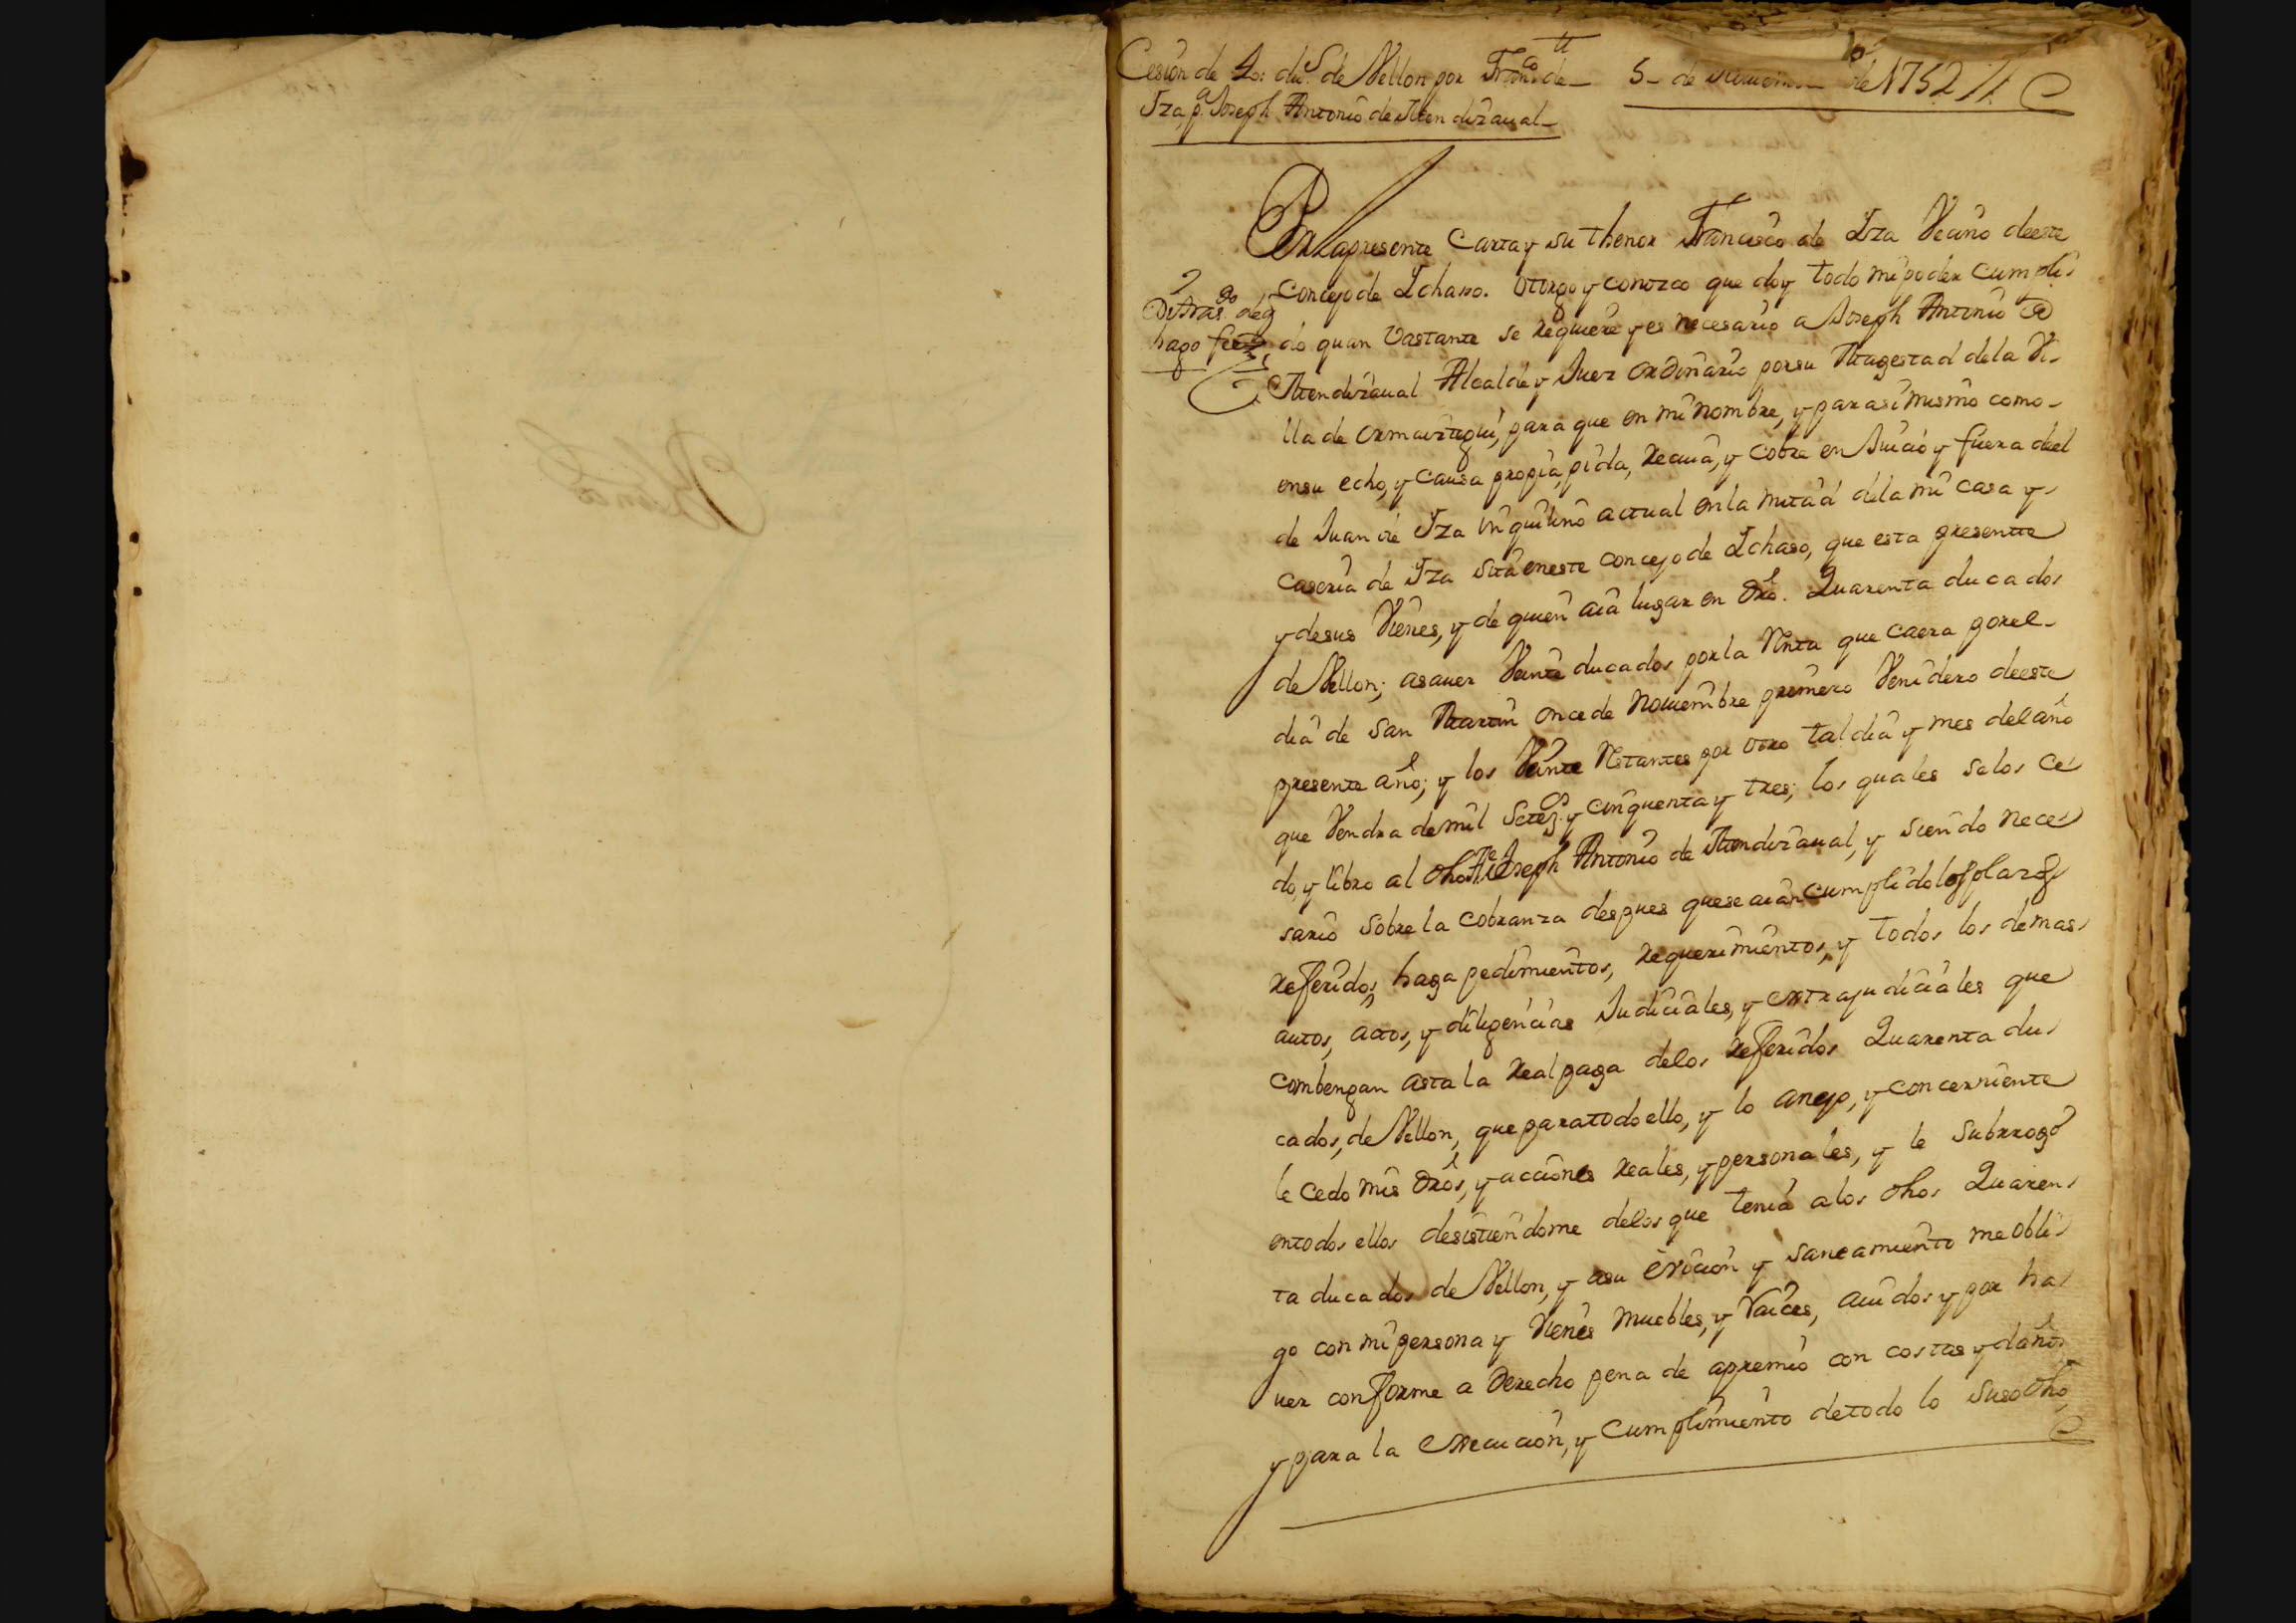 Cesion de 40: duc.s de Vellon por Fran.co de
Yza, p.a Joseph Antonio de Mendizaual
5 de de 1752
Por la presente Carta y su thenor Francisco de Yza Vecino de este
Concejo de Ychaso. Otorgo y conozco que doy todo mi poder cumpli
do quan Vastante se requiere y es necesario a Joseph Antonio de
Mendizaual Alcalde y Juez ordinario por su Magestad de la Vi
lla de ormaiztegui, para que en mi nombre, y para si mismo como
en su echo, y causa propia, pida, reciua, y cobre en Juicio y fuera de el
de Juan de Yza Ynquilino actual en la mitad de la mi casa y
caseria de Yza sita en este concejo de Ychaso, que esta presente
y de sus Vienes, y de quien aia lugar en dro. Quarenta ducados
de Vellon; asauer Veinte ducados por la Renta que caera por el
dia de San Martin once de Nouiembre primero Venidero de este
presente año; y los Veinte Restantes por otro tal dia y mes del año
que Vendra de mil Setez.os y cinquenta y tres; los quales se los ce
do, y libro al dho Joseph Antonio de Mendizaual, y siendo nece
sario sobre la cobranza despues que se aian cumplido los plazos
referidos, haga pedimientos, requerimientos, y todos los demas
autos, actos, y diligencias Judiciales, y extrajudiciales que
combengan asta la real paga de los referidos Quarenta du
cados, de Vellon, que para todo ello, y lo anejo, y concerniente
le cedo mis dros, y acciones reales, y personales, y le subrrogo
en todos ellos desistiendome de los que tenia a los dhos Quaren
ta ducados de Vellon, y a su eviccion y saneamiento me obli
go con mi persona y Vienes muebles, y Raices, auidos y por ha
uer conforme a Derecho pena de apremio con costas y daños
y para la execucion, y cumplimiento de todo lo susodho
hago fee